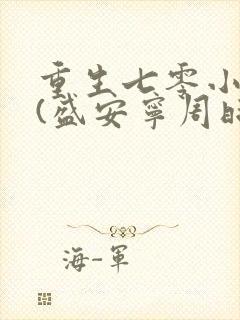 重生七零小
(盛安宁周时
海-军